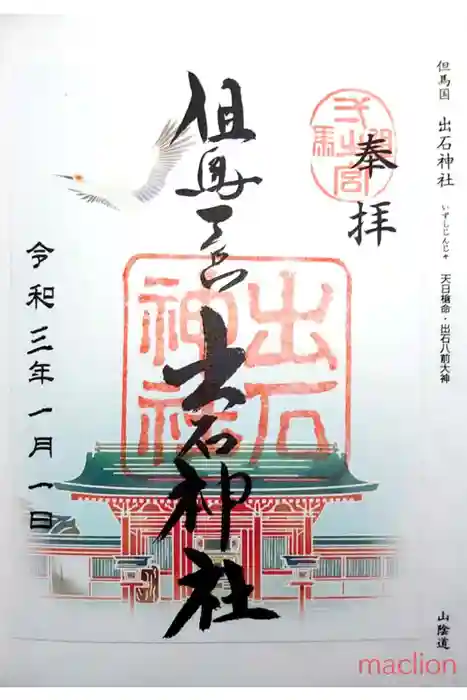 但馬国 出石神社 いずしじんじゃ 天日槍命・出石八前大神
山陰道
奉拝
但馬一宮 出石神社
出石
神社
令和三年一月一日
maclion